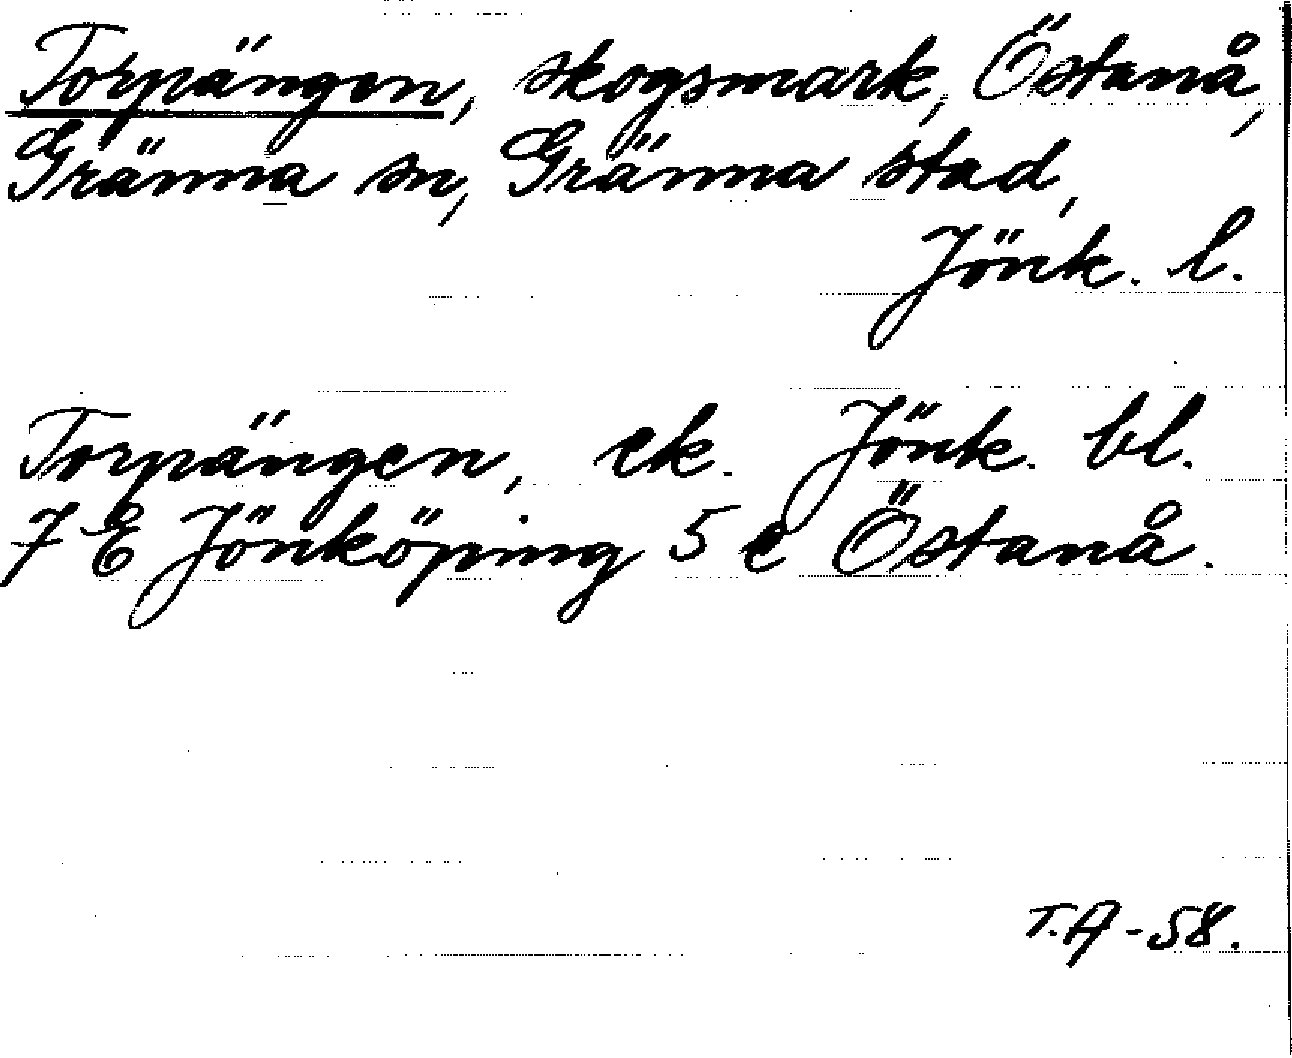 Torpängen, skogsmark, Östanå,
Gränna sn, Gränna stad,
Jönk. l.
Torpängen, ek. Jönk. bl.
7 E Jönköping 5 e Östanå.
T.A-58.